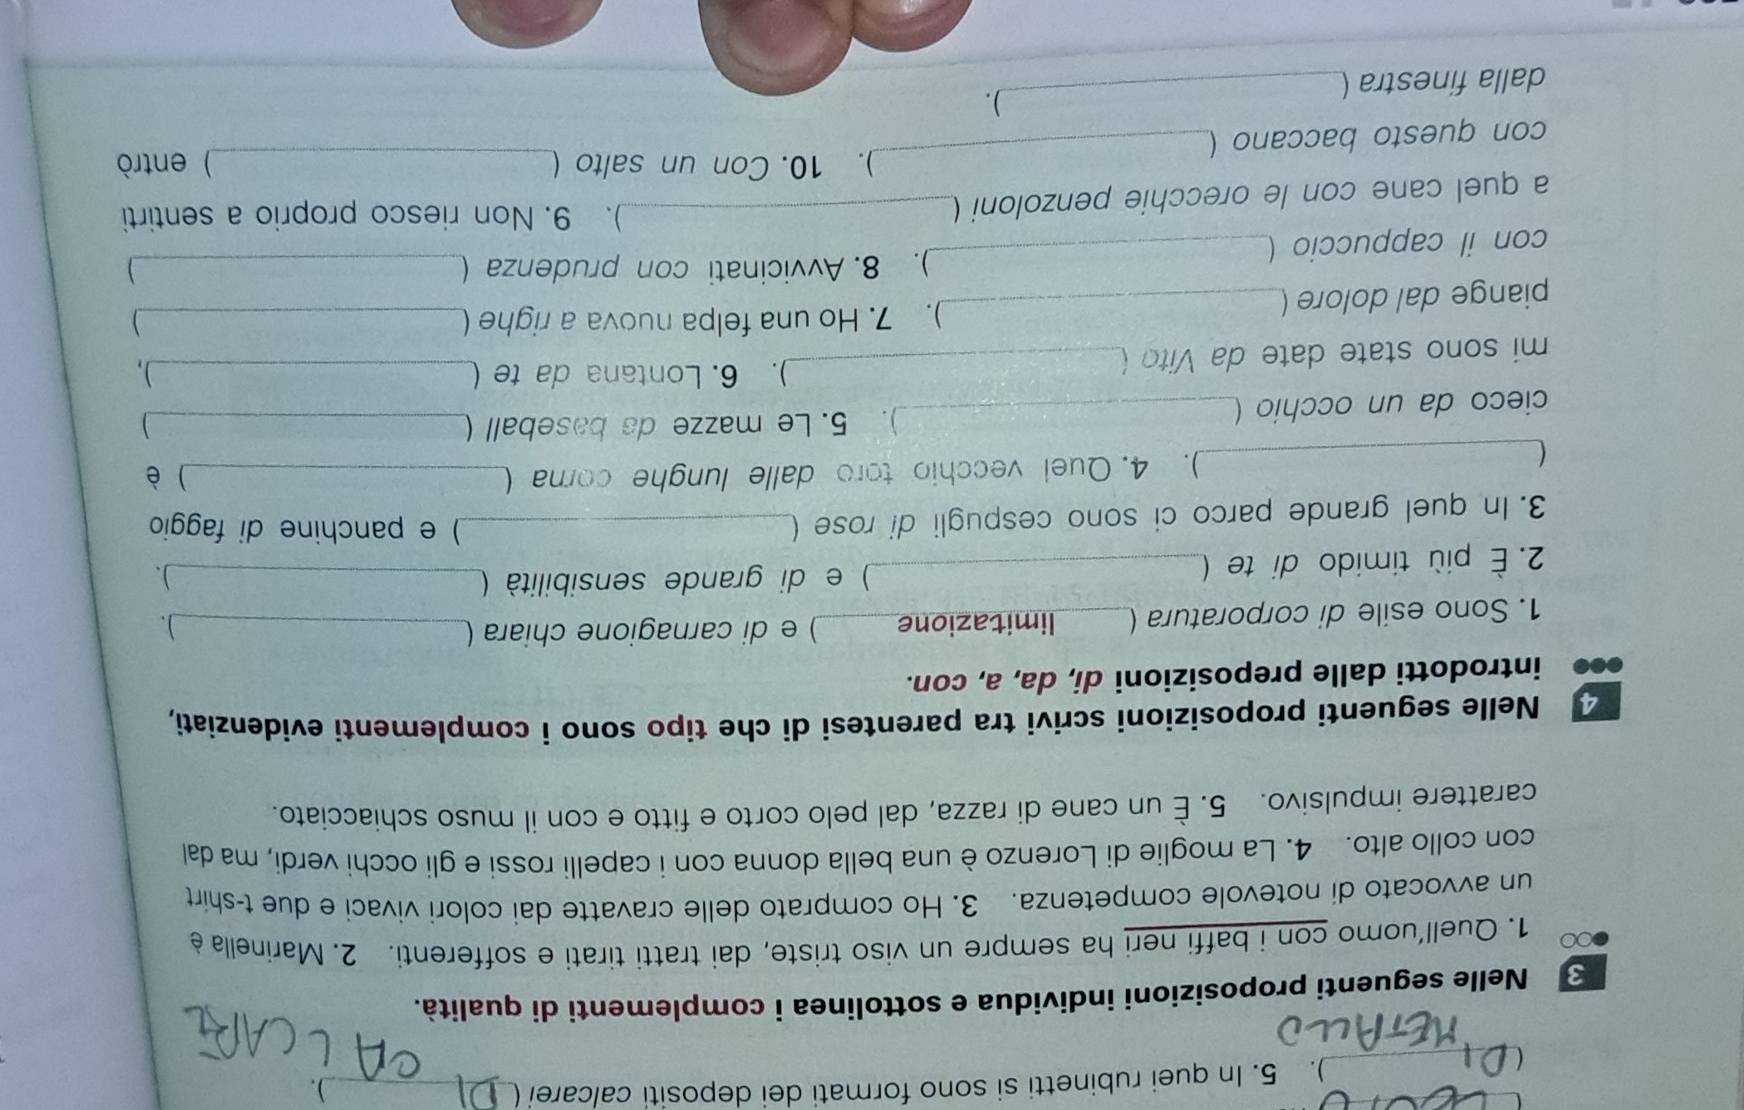 ). 5. In quei rubinetti si sono formati dei depositi calcarei ( DI ).
( DI METALLO CALCARE
3 Nelle seguenti proposizioni individua e sottolinea i complementi di qualità.
1. Quell'uomo con i baffi neri ha sempre un viso triste, dai tratti tirati e sofferenti. 2. Marinella è
un avvocato di notevole competenza. 3. Ho comprato delle cravatte dai colori vivaci e due t-shirt
con collo alto. 4. La moglie di Lorenzo è una bella donna con i capelli rossi e gli occhi verdi, ma dal
carattere impulsivo. 5. È un cane di razza, dal pelo corto e fitto e con il muso schiacciato.
4 Nelle seguenti proposizioni scrivi tra parentesi di che tipo sono i complementi evidenziati,
introdotti dalle preposizioni di, da, a, con.
1. Sono esile di corporatura ( limitazione ) e di carnagione chiara ( ).
2. È più timido di te ( ) e di grande sensibilità ( ).
3. In quel grande parco ci sono cespugli di rose ( ) e panchine di faggio
( ). 4. Quel vecchio toro dalle lunghe corna ( ) è
cieco da un occhio ( ). 5. Le mazze da baseball ( )
mi sono state date da Vito ( ). 6. Lontana da te ( ),
piange dal dolore ( ). 7. Ho una felpa nuova a righe ( )
con il cappuccio ( ). 8. Avvicinati con prudenza ( )
a quel cane con le orecchie penzoloni ( ). 9. Non riesco proprio a sentirti
con questo baccano ( ). 10. Con un salto ( ) entrò
dalla finestra ( ).